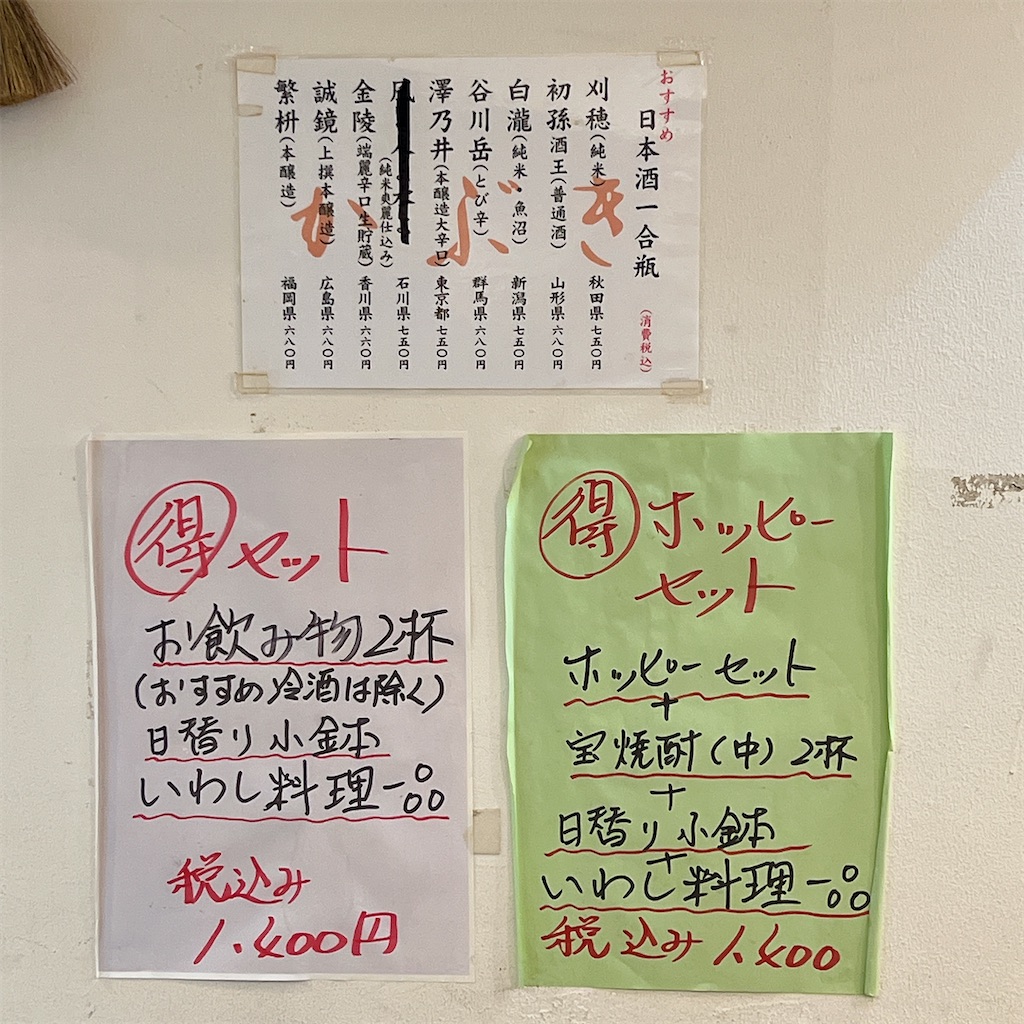 おすすめ
日本酒一合瓶
(消費税込)
刈穂(純米) 秋田県 七五〇円
初孫 酒王(普通酒) 山形県 六八〇円
白瀧(純米・魚沼) 新潟県 七五〇円
谷川岳(とび辛) 群馬県 六八〇円
澤乃井(本醸造大辛口) 東京都 七五〇円
(純米爽麗仕込み) 石川県 七五〇円
金陵(端麗辛口生貯蔵) 香川県 六六〇円
誠鏡(上撰本醸造) 広島県 六八〇円
繁桝(本醸造) 福岡県 六八〇円
かぶき
得 セット
お飲み物2杯
(おすすめ冷酒は除く)
日替り小鉢
いわし料理一品
税込み
1,400円
得 ホッピー
セット
ホッピーセット
+
宝焼酎(中)2杯
+
日替り小鉢
+
いわし料理一品
税込み 1,400